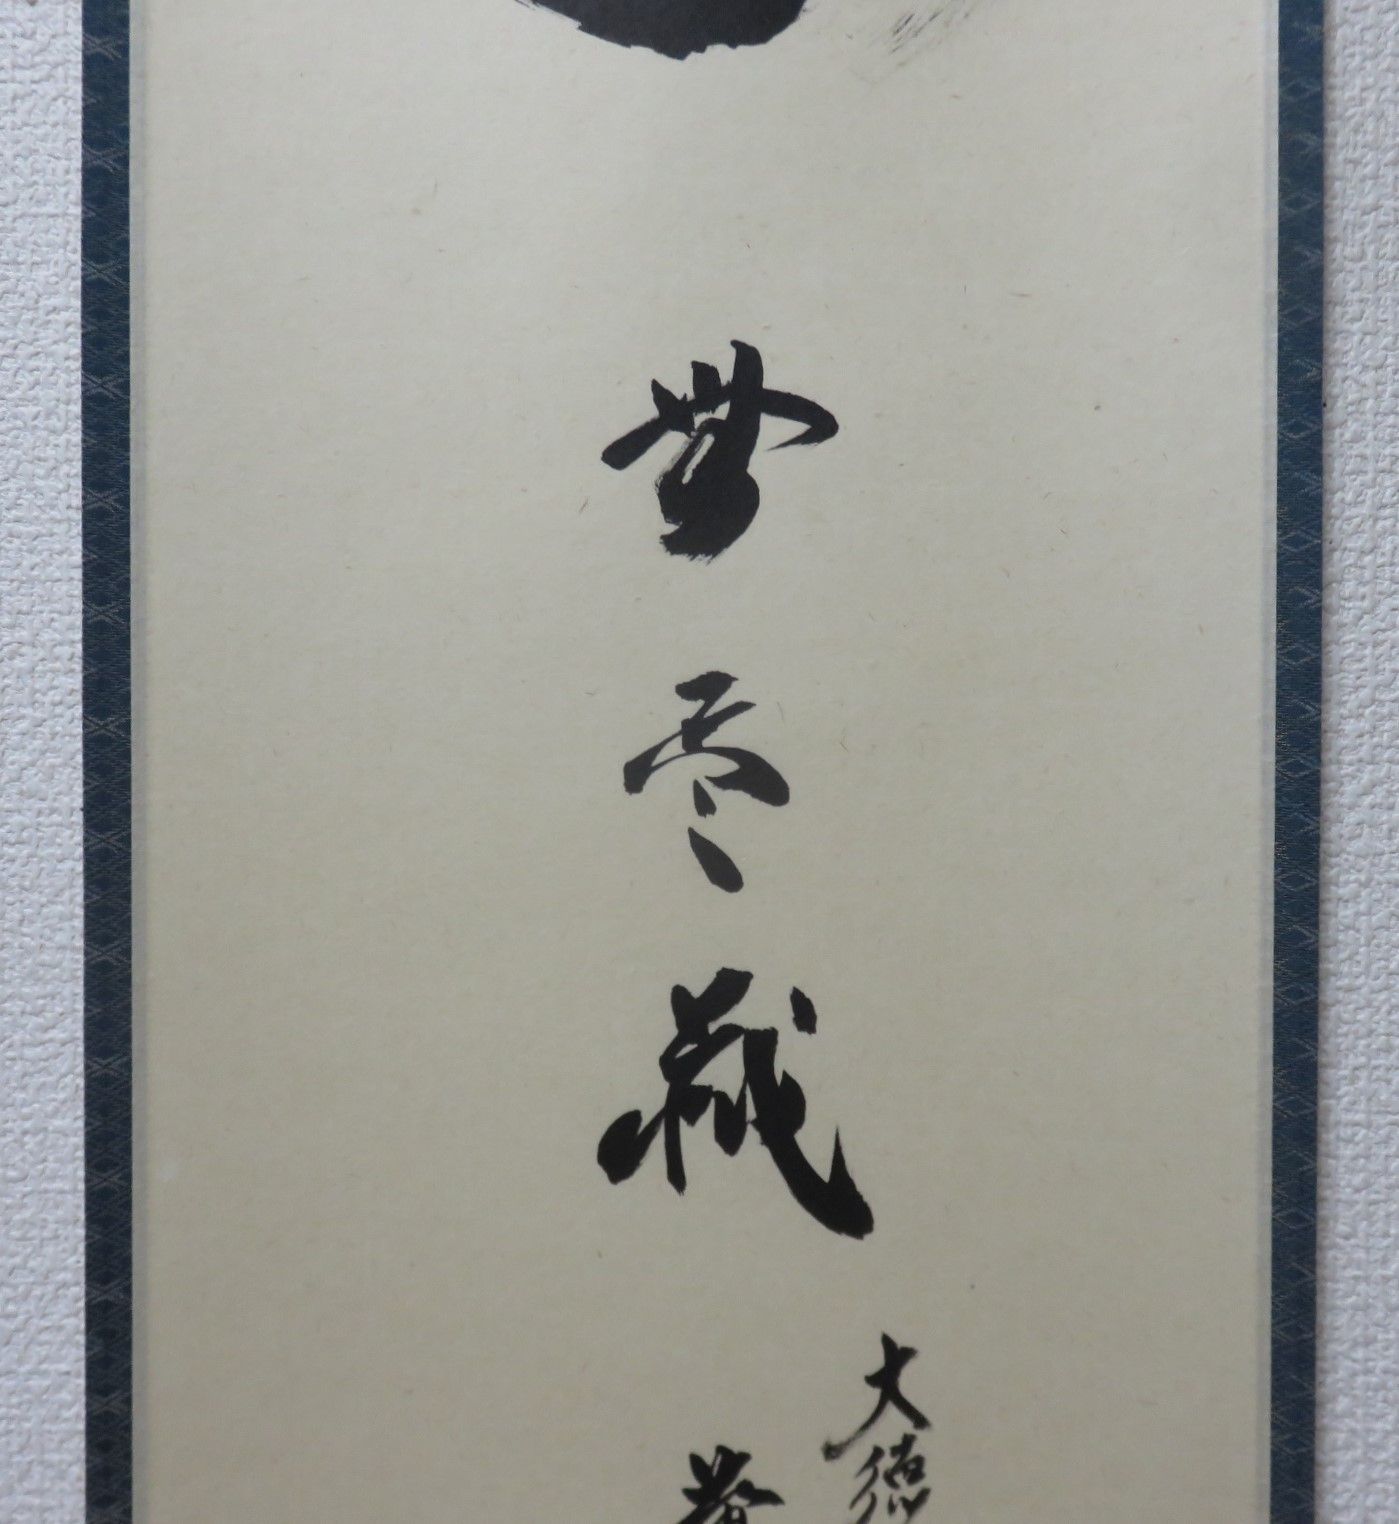 無尽蔵
大徳